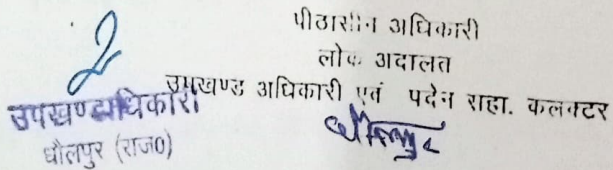 पीठासीन अधिकारी
लोक अदालत
उपखण्ड अधिकारी एवं पदेन सहा. कलक्टर
धौलपुर
उपखण्डाधिकारी
धौलपुर (राज0)